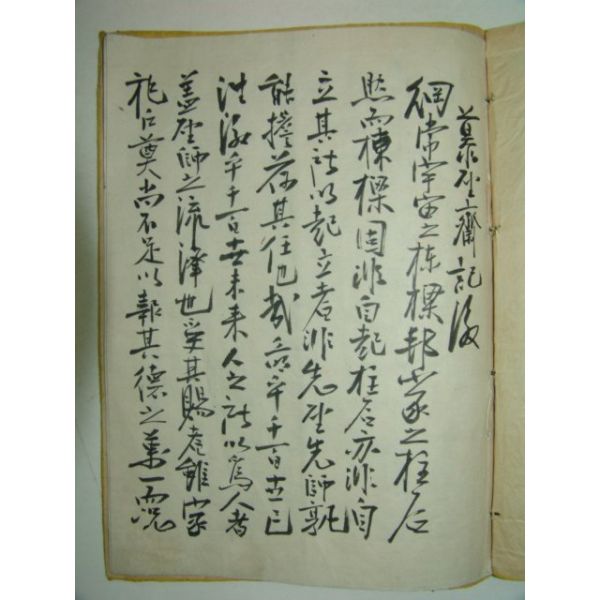 慕聖齋記後
綱常宇宙之棟樑邦家之柱石
然而棟樑固非自起柱石亦非自
立其所以起立者非先聖先師孰
能擔荷其任也哉前乎千百世已
往後乎千百世未來人之所以爲人者
盖聖師之流澤也受其賜者雖家
祀戶奠尚不足以報其德之萬一況